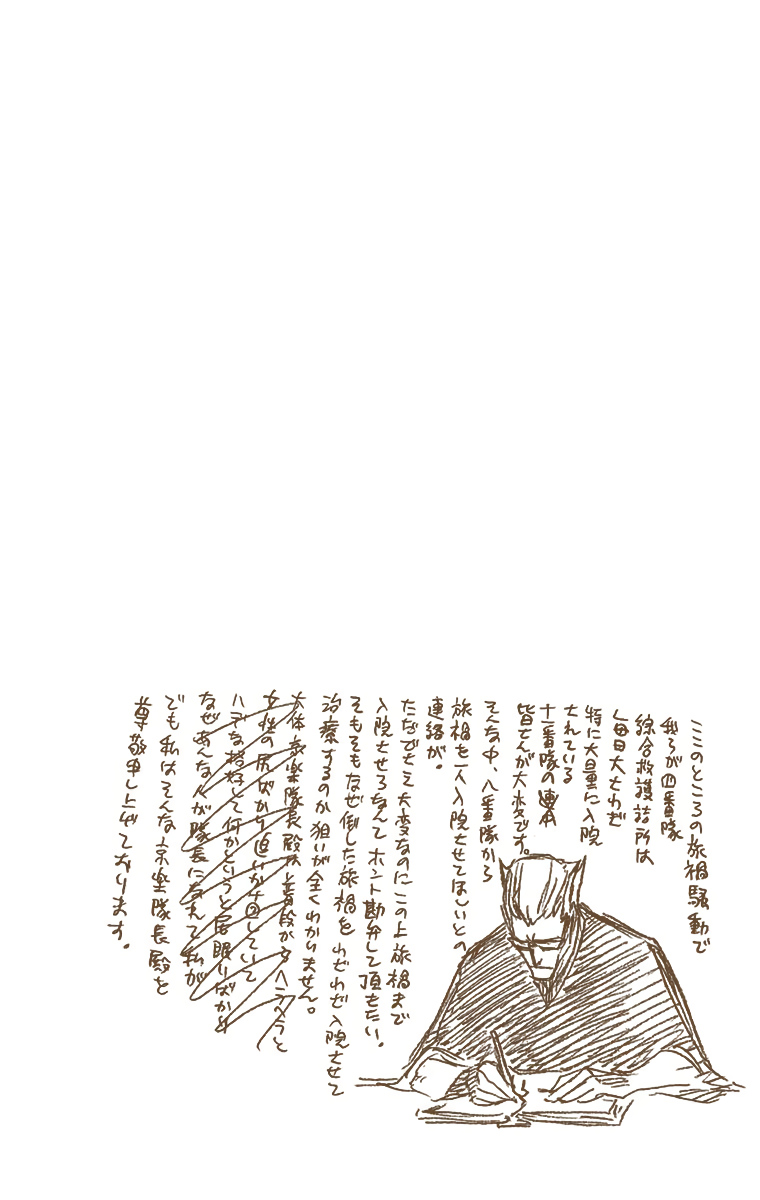 ここのところの旅禍騒動で
我らが四番隊
綜合救護詰所は
毎日大さわぎ
特に大量に入院
されている
十一番隊の連中
皆さんが大変です。
そんな中、八番隊から
旅禍を一人入院させてほしいとの
連絡が。
ただでさえ大変なのにこの上旅禍まで
入院させろなんてホント勘弁して頂きたい。
そもそもなぜ倒した旅禍をわざわざ入院させて
治療するのか狙いが全くわかりません。
大体京楽隊長殿は普段からヘラヘラと
女性の尻ばかり追いかけ回していて
ハデな格好して何かというと居眠りばかり
なぜあんな人が隊長になれて私が
でも私はそんな京楽隊長殿を
尊敬申し上げております。